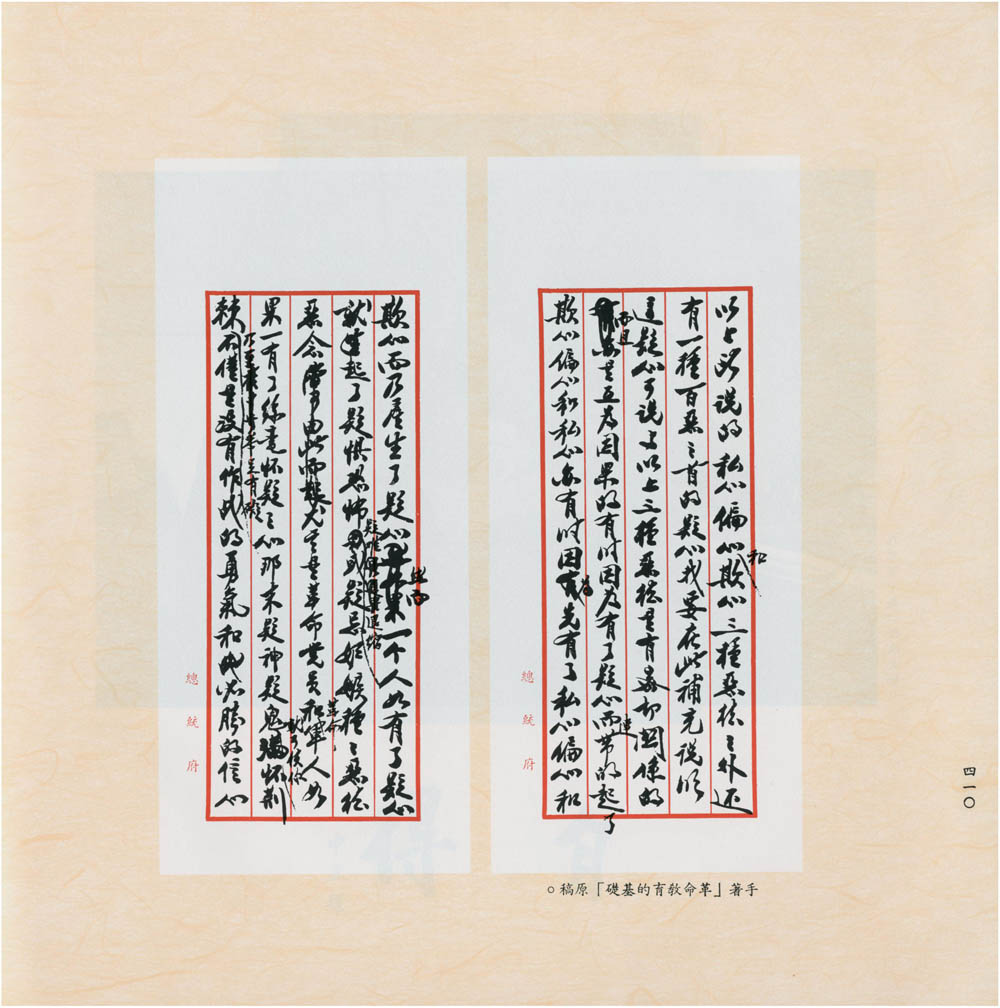 以上所說的私心偏心欺心三種惡根之外还
和
有一種百惡之首的疑心我要在此補充說明
這疑心可說是以上三種惡根是有密切関係的
而且
是互為因果的有時因为有了疑心而帶的起了
連
欺心偏心和私心亦有時因先有了私心偏心和
總統府
欺心而乃產生了疑心一个人如有了疑心
就生起了疑惧恐怖疑忌妬嫉種之惡根
惡念常由此而起尤其是革命党員和軍人如
革命
果一有了絲毫怀疑之心那末疑神疑鬼滿怀荊
棘不僅是沒有作战的勇氣和必胜的信心
總統府
手著「革命教育的基礎」原稿。
四一〇